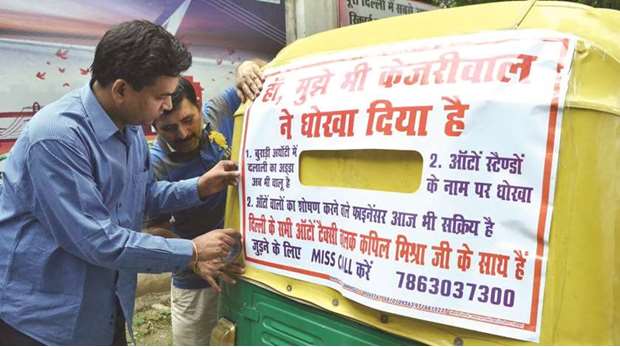 पूरी दिल्ली में सबसे
हां, मुझे भी केजरीवाल
ने धोखा दिया है
1. बुराड़ी अथॉटी में
दलाली का अड्डा
अब भी चालू है
2. ऑटों स्टैण्डों
के नाम पर धोखा
2. ऑटों वालों का शोषण करने वाले फाइनेंसर आज भी सक्रिय है
दिल्ली के सभी ऑटों टैक्सी चालक कपिल मिश्रा जी के साथ हैं
जुड़ने के लिए MISS CALL करें 7863037300